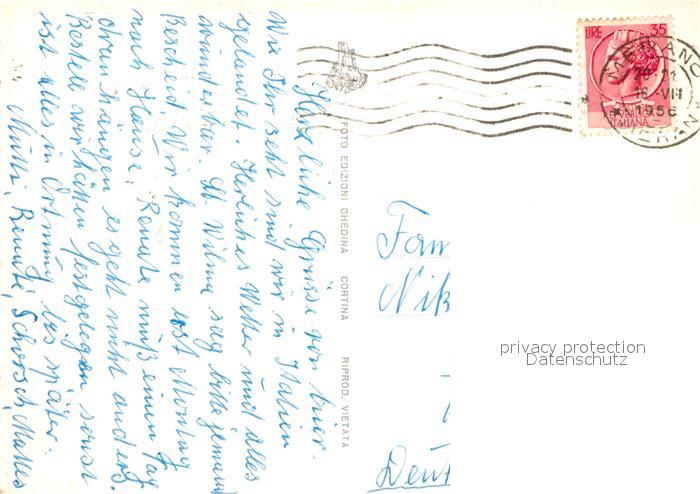 Herzliche Grüsse von hier.
Wie Ihr seht sind wir in Italien
gelandet. Herrliches Wetter und alles
wunderbar. Wilma sag bitte jemand
Bescheid. Wir kommen erst Montag
nach Hause, Renate muß einen Tag
dran hängen es geht nicht anders.
Bestell wir hätten festgelegen sonst
ist alles in Ordnung bis später.
Mutti, Renate, Schorsch, Mattes
FOTO EDIZIONI GHEDINA CORTINA RIPROD. VIETATA
LIRE 35
REPUBBLICA
ITALIANA
MERANO
20-21
16-VIII
1956
MERAN
Fam
Nik
Deut
privacy protection
Datenschutz